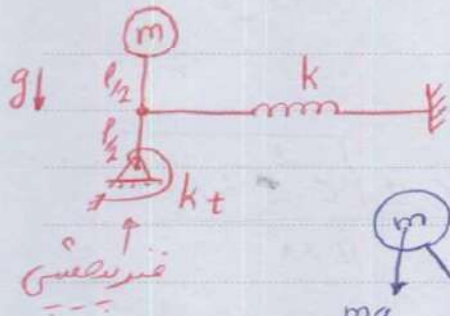 m
l/2
k
g↓
l/2
kt
فنر پیچشی
m
mg